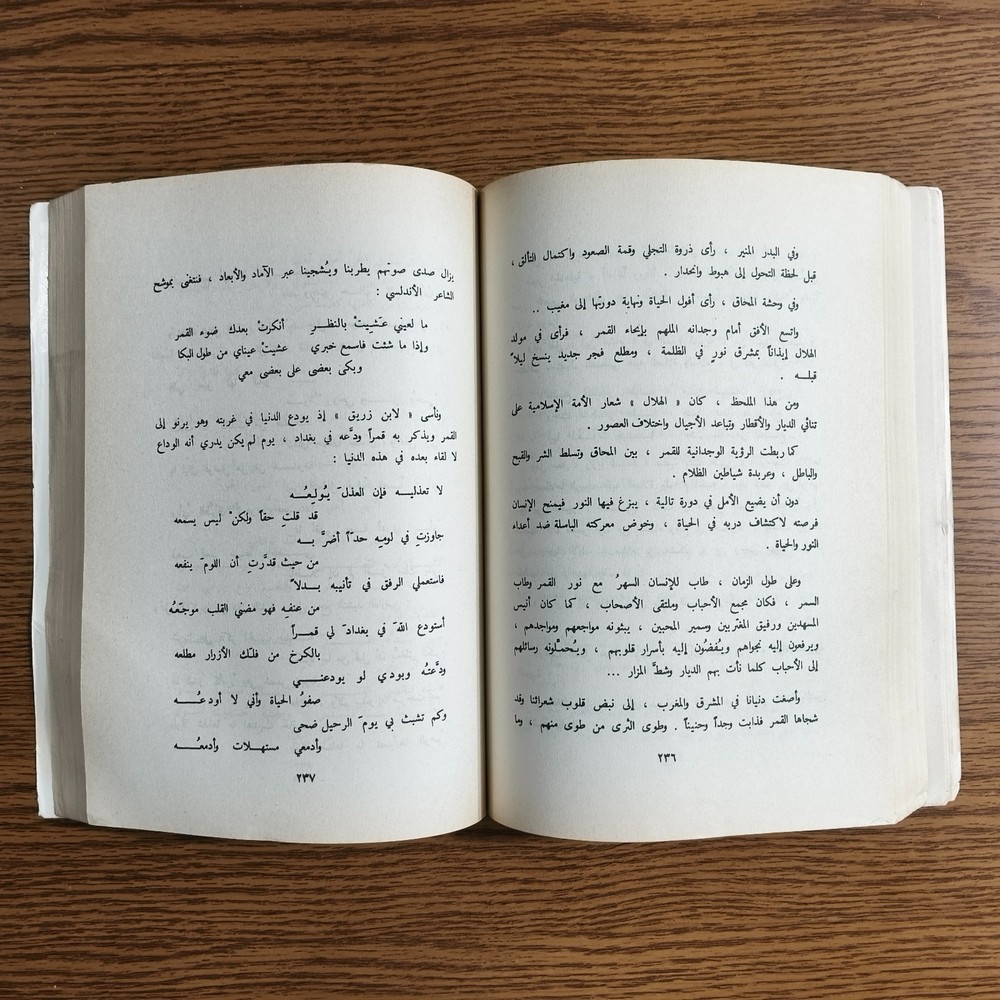 وفي البدر المنير ، رأى ذروة التجلي وقمة الصعود واكتمال التألق ،
قبل لحظة التحول إلى هبوط وانحدار .
وفي وحشة المحاق ، رأى أفول الحياة ونهاية دورتها إلى مغيب ..
واتسع الأفق أمام وجدانه الملهم بإيحاء القمر ، فرأى في مولد
الهلال إيذاناً بمشرق نورٍ في الظلمة ، ومطلع فجر جديد ينسخ ليلاً
قبلـــه .
ومن هذا الملحظ ، كان « الهلال » شعار الأمة الإسلامية على
تنائي الديار والأقطار وتباعد الأجيال واختلاف العصور .
كما ربطت الرؤية الوجدانية للقمر ، بين المحاق وتسلط الشر والقبح
والباطل ، وعربدة شياطين الظلام .
دون أن يضيع الأمل في دورة تالية ، يبزغ فيها النور فيمنح الإنسان
فرصته لاكتشاف دربه في الحياة ، وخوض معركته الباسلة ضد أعداء
النور والحياة .
وعلى طول الزمان ، طاب للإنسان السهرُ مع نور القمر وطاب
السمر ، فكان مجمع الأحباب وملتقى الأصحاب ، كما كان أنيس
المسهدين ورفيق المغتربين وسمير المحبين ، يبثونه مواجعهم ومواجدهم ،
ويرفعون إليه نجواهم ويُفضُون إليه بأسرار قلوبهم ، ويُحمِّلونه رسائلهم
إلى الأحباب كلما نأت بهم الديار وشطَّ المزار ...
وأصغت دنيانا في المشرق والمغرب ، إلى نبض قلوب شعرائنا وقد
شجاها القمر فذابت وجداً وحنيناً . وطوى الثرى من طوى منهم ، وما
٢٣٦
يزال صدى صوتهم يطربنا ويُشجينا عبر الآماد والأبعاد ، فنتغنى بموشح
الشاعر الأندلسي :
ما لعيني عَشِيتْ بالنظـــرِ أنكرتْ بعدك ضوء القمر
وإذا ما شئت فاسمع خبري عشيتْ عيناي من طول البكا
وبكى بعضى على بعضى معي
ونأسى « لابن زريق » إذ يودع الدنيا في غربته وهو يرنو إلى
القمر ويذكر به قمراً ودَّعه في بغداد ، يوم لم يكن يدري أنه الوداع
لا لقاء بعده في هذه الدنيا :
لا تعذليـــه فإن العذلَ يُولِعُـــه
قد قلتِ حقاً ولكنْ ليس يسمعه
جاوزتِ في لومِه حدّاً أضرَّ بـــه
من حيث قدَّرتِ أن اللومَ ينفعه
فاستعملي الرفق في تأنيبه بـــدلاً
من عنفِه فهو مضني القلب موجَعُه
أستودع اللهَ في بغدادَ لي قمـــراً
بالكرخ من فلك الأزرار مطلعه
ودَّعتُه وبودي لو يودعنـــي
صفوُ الحياة وأني لا أودعُـــه
وكم تشبث بي يومَ الرحيل ضحى
وأدمعي مستهلات وأدمعُـــه
٢٣٧